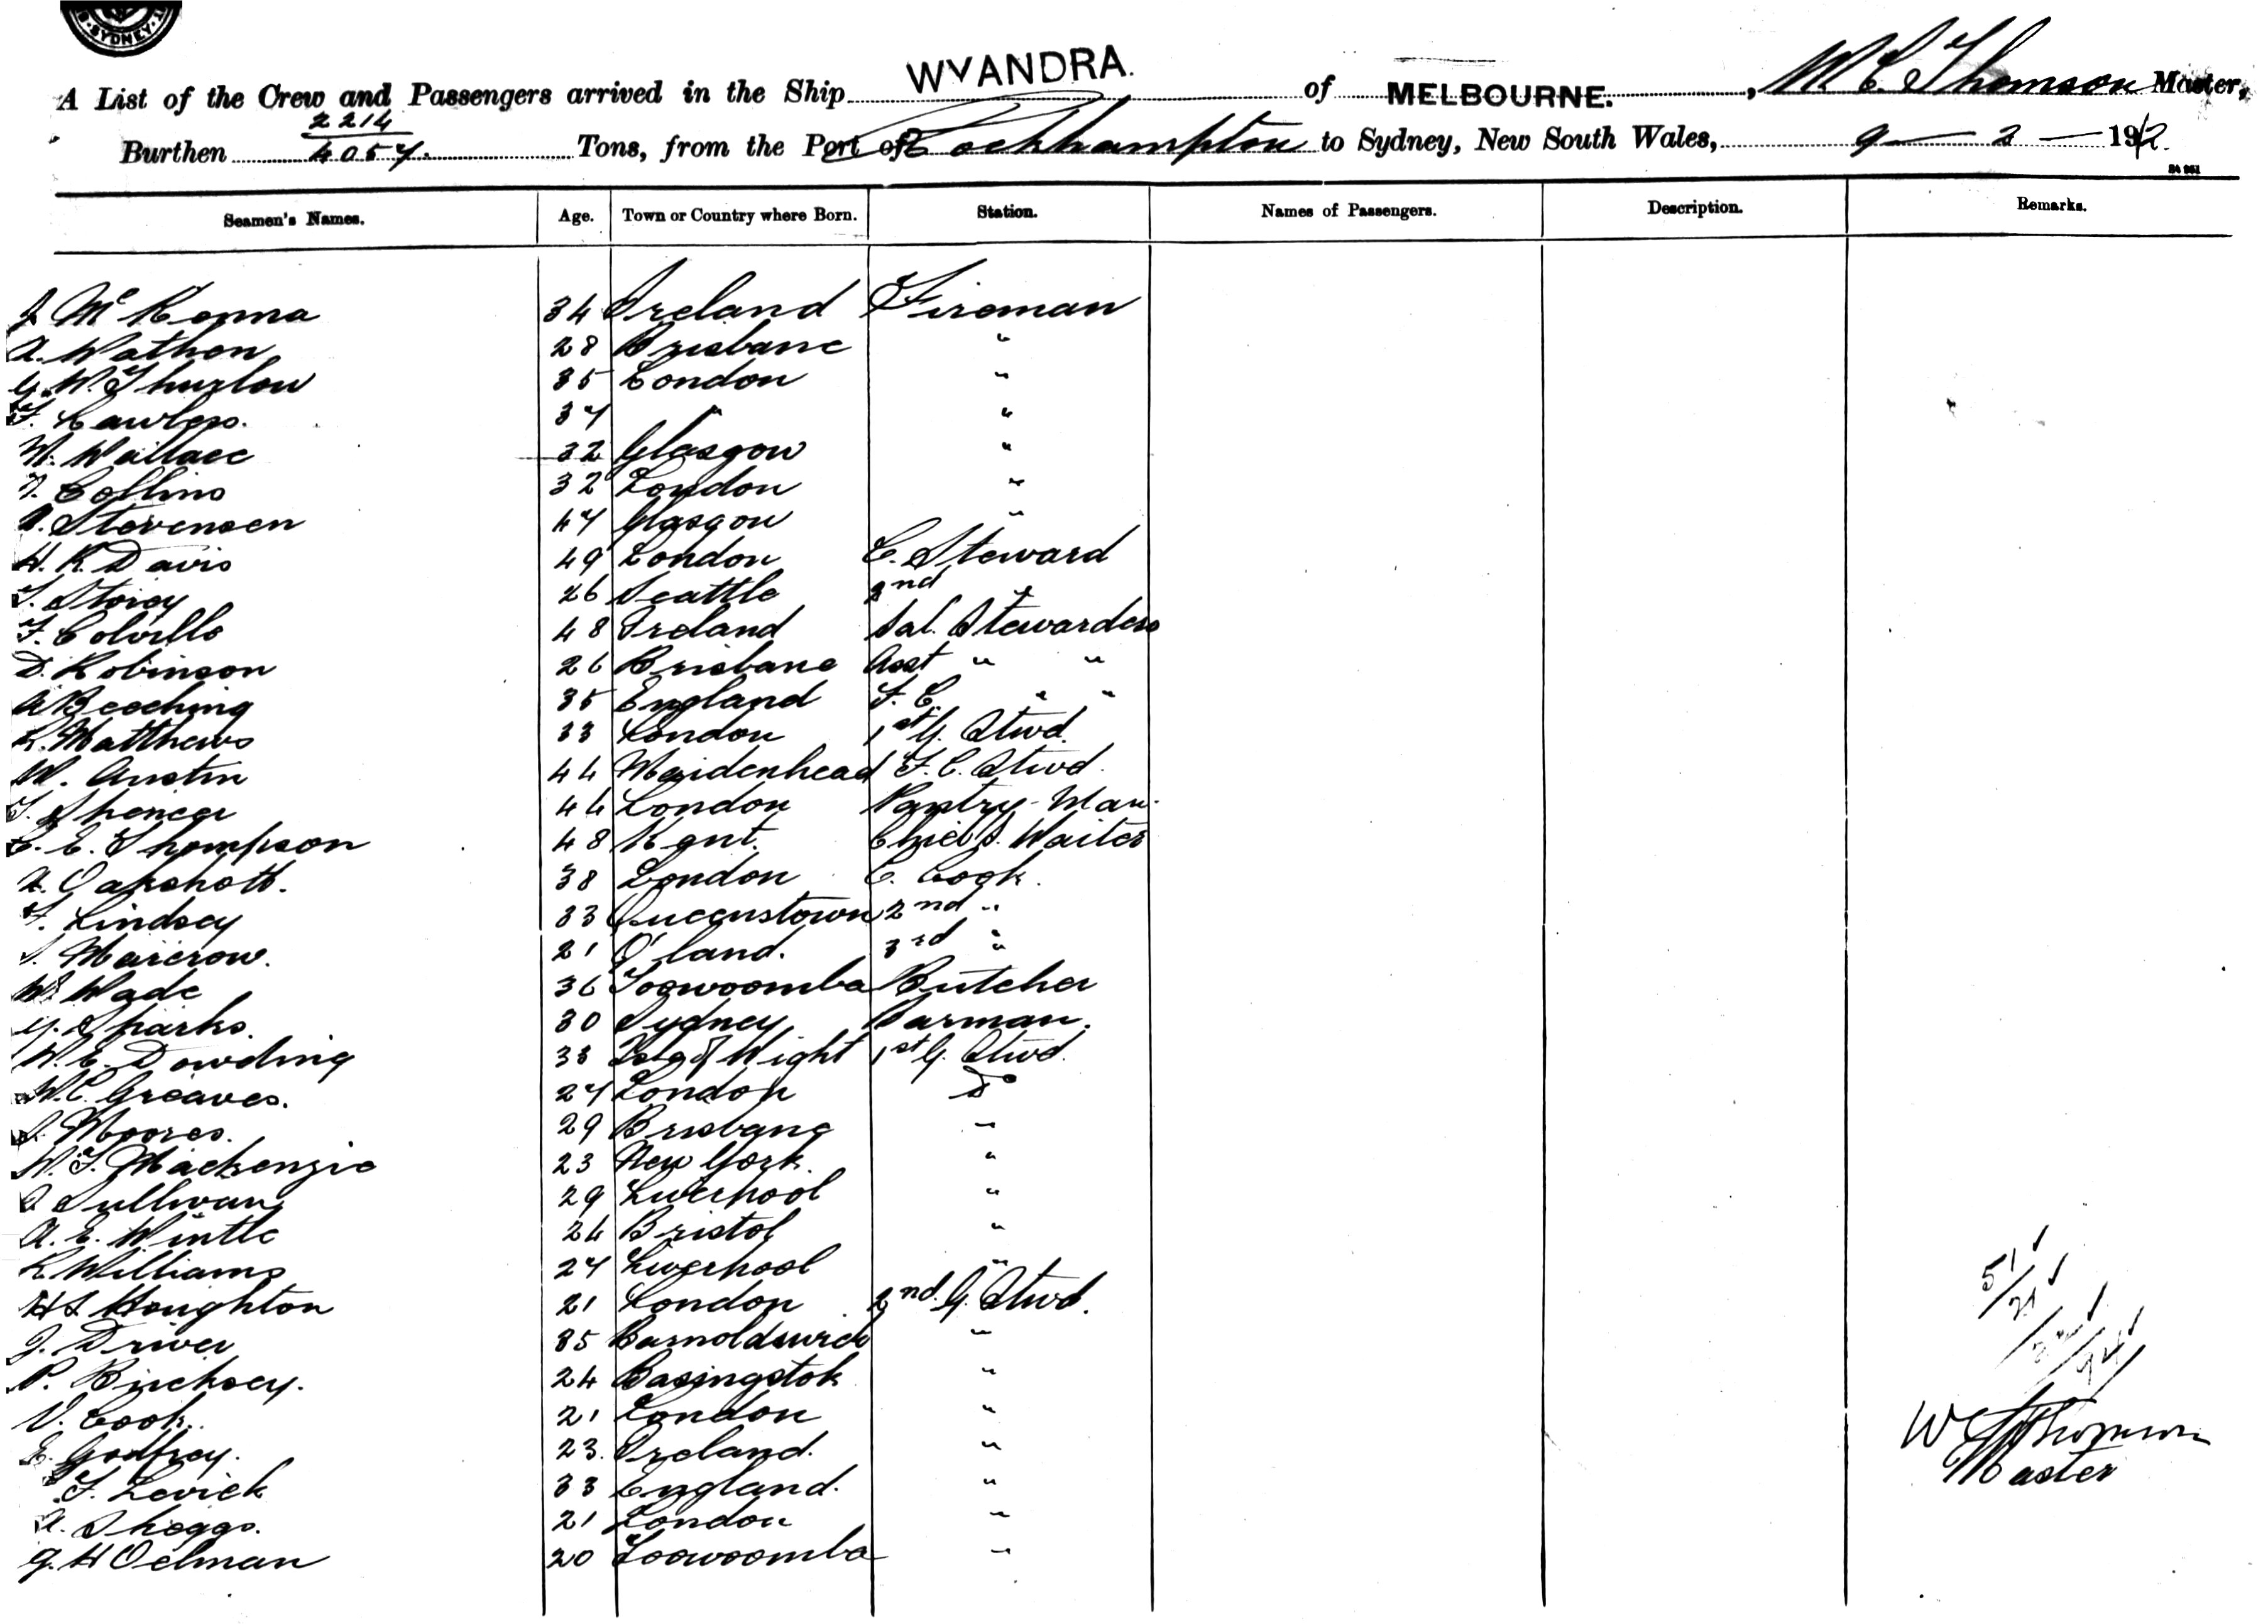 SYDNEY
A List of the Crew and Passengers arrived in the Ship WYANDRA. of MELBOURNE. , W C Thomson Master,
Burthen 2214 / 4057. Tons, from the Port of Rockhampton to Sydney, New South Wales, 9 — 2 — 1912
Seamen's Names. Age. Town or Country where Born. Station. Names of Passengers. Description. Remarks.
J McKenna 34 Ireland Fireman
A. Wathen 28 Brisbane "
G. W. Thurlow 35 London "
F. Lawless. 37 " "
W. Wallace 32 Glasgow "
T. Collins 32 London "
Stevensen 47 Glasgow "
H. R. Davis 49 London C. Steward
Storey 26 Seattle 2nd "
F. Colville 48 Ireland Sal. Stewardess
D. Robinson 26 Brisbane Asst " "
A Beeching 35 England F. C. " "
L. Matthews 33 London 1st G. Stwd.
W. Austin 44 Maidenhead F. C. Stwd.
Spencer 44 London Pantry-Man.
C. E. Thompson 48 Kent. Chief S. Waiter
Oakshott. 38 London C. Cook.
F. Lindsey 33 Queenstown 2nd "
Marcrow. 21 Q'land. 3rd "
W. Wade 36 Toowoomba Butcher
G. Sparks. 30 Sydney Barman.
W. E. Dowding 33 Isle of Wight 1st G. Stwd.
W. C. Greaves. 27 London Do
Moores. 29 Brisbane "
W. F. Mackenzie 23 New York. "
Sullivan 29 Liverpool "
A. E. Wintle 24 Bristol "
R. Williams 27 Liverpool "
Houghton 21 London 2nd. G. Stwd.
J. Driver 35 Barnoldswick "
P. Binchsey. 24 Basingstok "
V. Cook. 21 London "
E. Godfrey. 23. Ireland. "
F. Levick 33 England. "
A. Skeggs. 21 London "
G. H Oelman 20 Toowoomba "
51
21
94
W C Thomson
Master